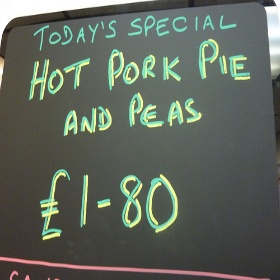 TODAY'S SPECIAL
HOT PORK PIE
AND PEAS
£1-80